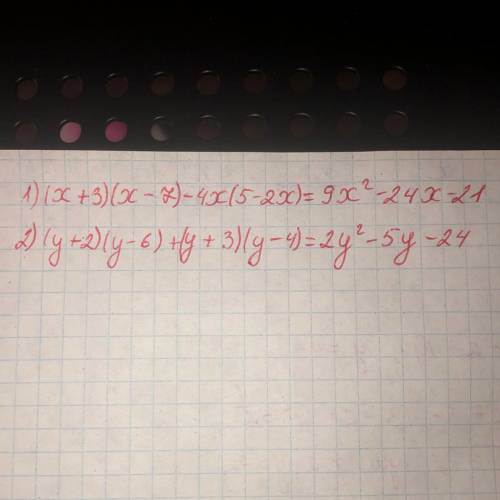 1) (x+3)(x-7)-4x(5-2x)=9x²-24x-21
2) (y+2)(y-6)+(y+3)(y-4)=2y²-5y-24